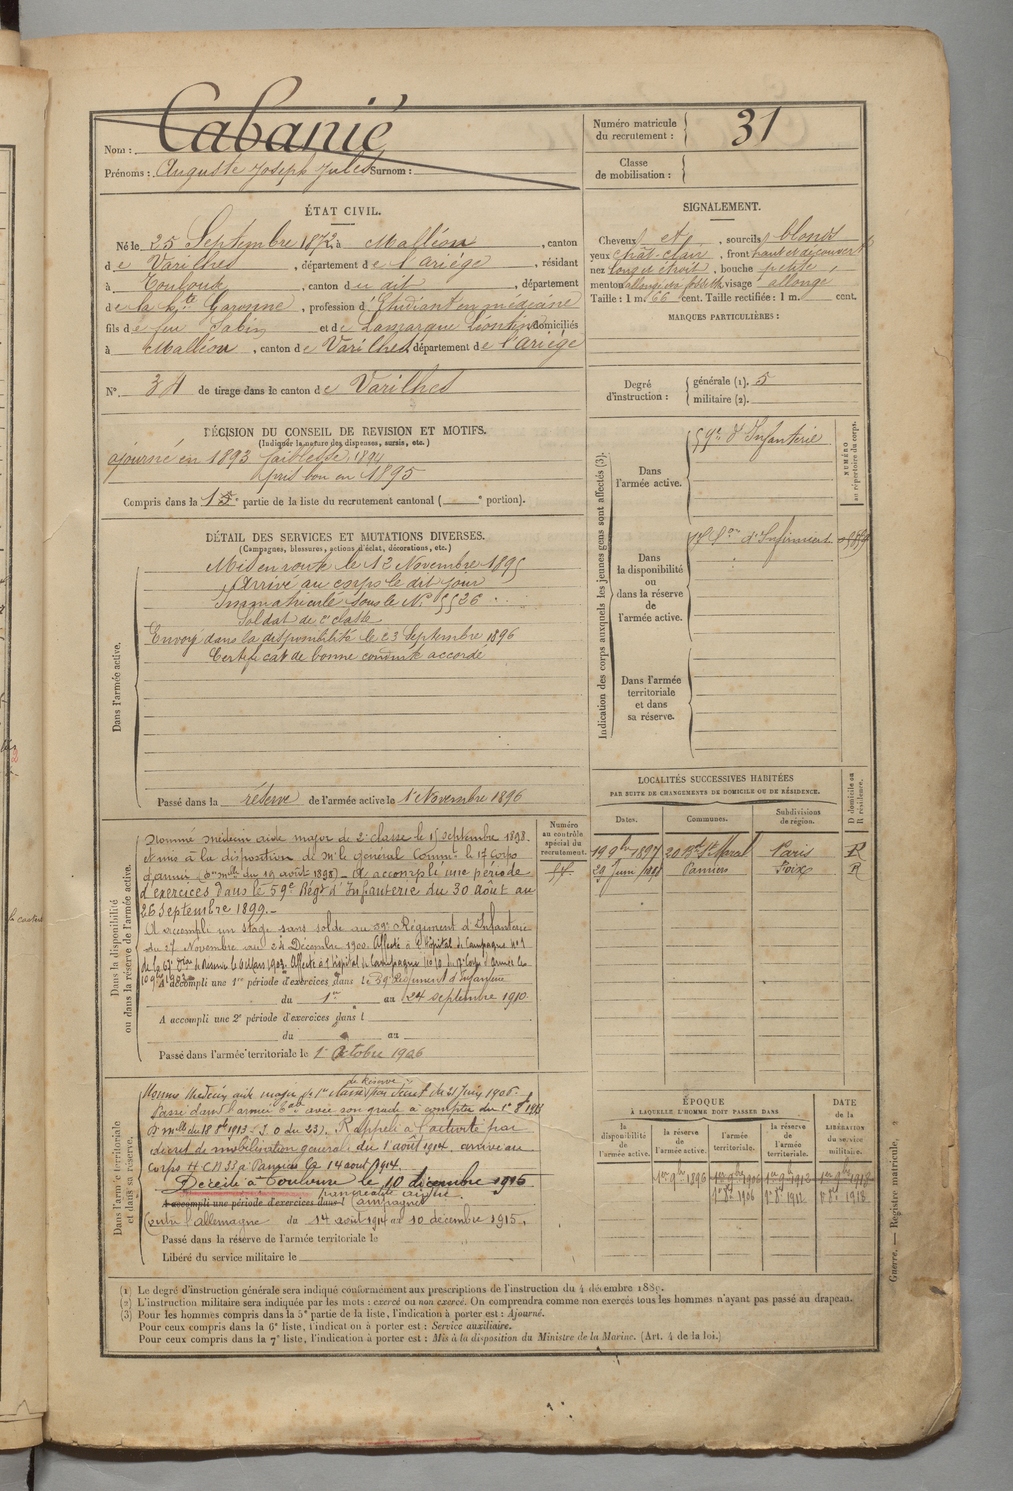 Nom : Cabanié
Prénoms : Auguste Joseph Jules Surnom :
Numéro matricule du recrutement : 31
Classe de mobilisation :
ÉTAT CIVIL.
Né le 25 Septembre 1872, à Malléon, canton
de Varilhes, département de l'Ariège, résidant
à Toulouse, canton du dit, département
de la Hte Garonne, profession d'Etudiant en médecine
fils de feu Sabin et de Lamarque Léontine domiciliés
à Malléon, canton de Varilhes, département de l'Ariège
N° 34 de tirage dans le canton de Varilhes
SIGNALEMENT.
Cheveux et, sourcils blonds
yeux chât-clair, front haut et découvert
nez long et droit, bouche petite,
menton visage allongé
Taille : 1 m. 66 cent. Taille rectifiée : 1 m. cent.
MARQUES PARTICULIÈRES :
Degré d'instruction : générale (1). 5
militaire (2).
DÉCISION DU CONSEIL DE REVISION ET MOTIFS.
(Indiquer la nature des dispenses, sursis, etc.)
ajourné en 1893 faiblesse, 1894
pris bon en 1895
Compris dans la 1e partie de la liste du recrutement cantonal ( e portion).
DÉTAIL DES SERVICES ET MUTATIONS DIVERSES.
(Campagnes, blessures, actions d'éclat, décorations, etc.)
Dans l'armée active.
Mis en route le 12 Novembre 1895
Arrivé au corps le dit jour
Immatriculé sous le N° 5526
Soldat de 2e classe
Envoyé dans la disponibilité le 23 Septembre 1896
Certificat de bonne conduite accordé
Passé dans la réserve de l'armée active le 1er Novembre 1896
Indication des corps auxquels les jeunes gens sont affectés (3).
NUMÉRO au répertoire du corps.
Dans l'armée active.
59e d'Infanterie
Dans la disponibilité ou dans la réserve de l'armée active.
17e Son d'Infirmiers
Dans l'armée territoriale et dans sa réserve.
LOCALITÉS SUCCESSIVES HABITÉES
PAR SUITE DE CHANGEMENTS DE DOMICILE OU DE RÉSIDENCE.
Dates. Communes. Subdivisions de région. D domicile ou R résidence.
19 9bre 1897 20 Bd St Marcel Paris R
Pamiers Foix R
Numéro au contrôle spécial du recrutement.
Dans la disponibilité ou dans la réserve de l'armée active.
Nommé médecin aide major de 2e classe le 15 septembre 1898.
et mis à la disposition de Mr le général Commt le 17 Corps
d'armée (Don mlle du 19 août 1898) - A accompli une période
d'exercices dans le 59e Régt d'Infanterie du 30 Août au
26 Septembre 1899.-
A accompli un stage sans solde au 59e Régiment d'Infanterie
du 27 Novembre au 24 Décembre 1900. Affecté à l'Hôpital de Campagne N° 1
de la 67e Don de Réserve le 6 Mars 1903. Affecté à l'hôpital de Campagne N° 10 du 17e Corps d'Armée le
10 9bre 1903
A accompli une 1re période d'exercices dans le 59e Régiment d'Infanterie
du 1er au 24 septembre 1910
A accompli une 2e période d'exercices dans l
du au
Passé dans l'armée territoriale le 1er Octobre 1906
Dans l'armée territoriale et dans sa réserve.
Nommé Médecin aide major de 1re classe de réserve par décret du 21 Juin 1906.
Passé dans l'armée tale avec son grade à compter du 1er 8bre 1913
Rappelé à l'activité par
décret de mobilisation générale du 1er août 1914. arrivé au
corps à Pamiers le 14 août 1914.
Décédé à Toulouse le 10 décembre 1915
pancréatite aiguë.
A accompli une période d'exercices dans l Campagnes
Contre l'Allemagne du 14 août 1914 au 10 décembre 1915.
Passé dans la réserve de l'armée territoriale le
Libéré du service militaire le
ÉPOQUE
À LAQUELLE L'HOMME DOIT PASSER DANS
DATE de la LIBÉRATION du service militaire.
la disponibilité de l'armée active. la réserve de l'armée active. l'armée territoriale. la réserve de l'armée territoriale.
1er 9bre 1896 1er 9bre 1906 1er 9bre 1912 1er 9bre 1918
1er 8bre 1906 1er 8bre 1912 1er 8bre 1918
(1) Le degré d'instruction générale sera indiqué conformément aux prescriptions de l'instruction du 4 décembre 1889.
(2) L'instruction militaire sera indiquée par les mots : exercé ou non exercé. On comprendra comme non exercés tous les hommes n'ayant pas passé au drapeau.
(3) Pour les hommes compris dans la 5e partie de la liste, l'indication à porter est : Ajourné.
Pour ceux compris dans la 6e liste, l'indication à porter est : Service auxiliaire.
Pour ceux compris dans la 7e liste, l'indication à porter est : Mis à la disposition du Ministre de la Marine. (Art. 4 de la loi.)
Guerre. — Registre matricule.